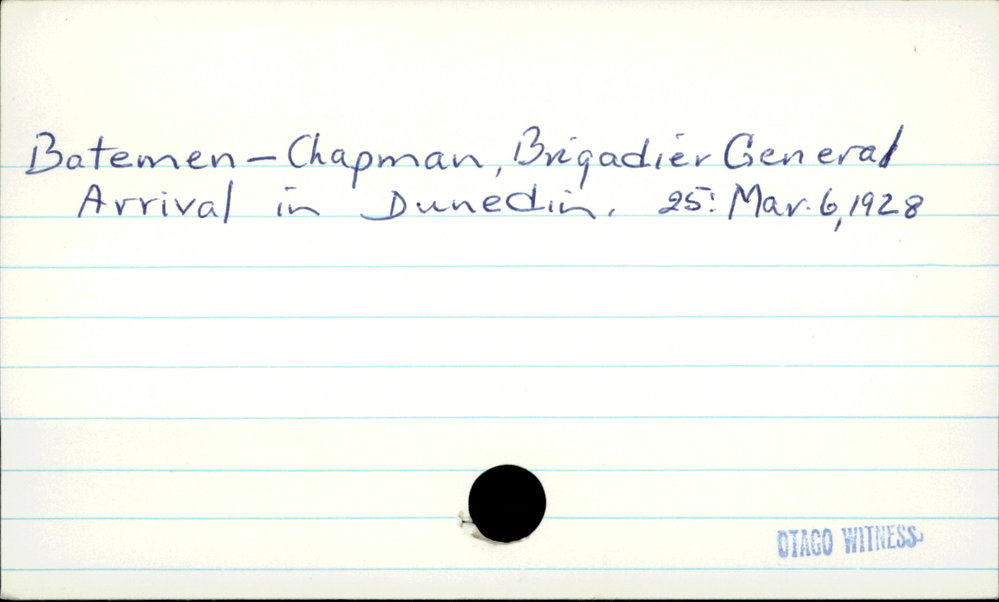 Batemen - Chapman, Brigadier General
Arrival in Dunedin. 25: Mar. 6, 1928
OTAGO WITNESS